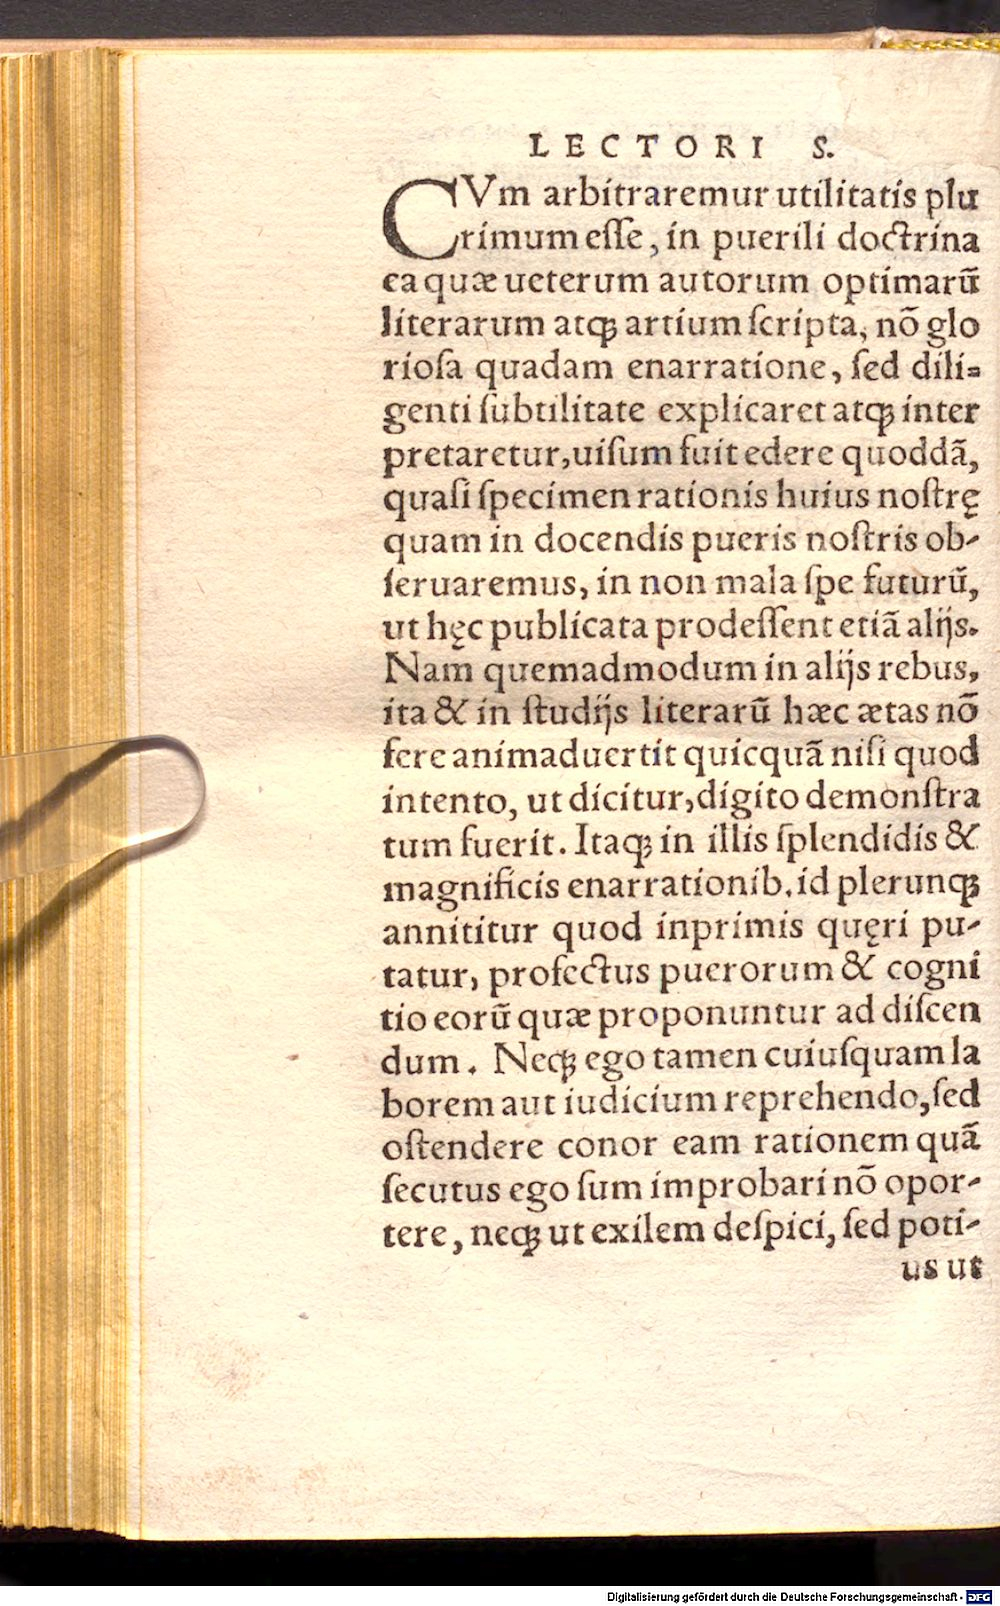 LECTORI S.
CVm arbitraremur utilitatis plu
rimum eſſe, in puerili doctrina
ea quæ ueterum autorum optimarũ
literarum atqꝫ artium ſcripta, nõ glo
rioſa quadam enarratione, ſed dili=
genti ſubtilitate explicaret atqꝫ inter
pretaretur, uiſum fuit edere quoddã,
quaſi ſpecimen rationis huius noſtrę
quam in docendis pueris noſtris ob-
ſeruaremus, in non mala ſpe futurũ,
ut hęc publicata prodeſſent etiã alijs.
Nam quemadmodum in alijs rebus,
ita & in ſtudijs literarũ hæc ætas nõ
fere animaduertit quicquã niſi quod
intento, ut dicitur, digito demonſtra
tum fuerit. Itaqꝫ in illis ſplendidis &
magnificis enarrationib. id plerunqꝫ
annititur quod inprimis quęri pu-
tatur, profectus puerorum & cogni
tio eorũ quæ proponuntur ad diſcen
dum. Neqꝫ ego tamen cuiuſquam la
borem aut iudicium reprehendo, ſed
oſtendere conor eam rationem quã
ſecutus ego ſum improbari nõ opor-
tere, neqꝫ ut exilem deſpici, ſed poti-
us ut
Digitalisierung gefördert durch die Deutsche Forschungsgemeinschaft - DFG